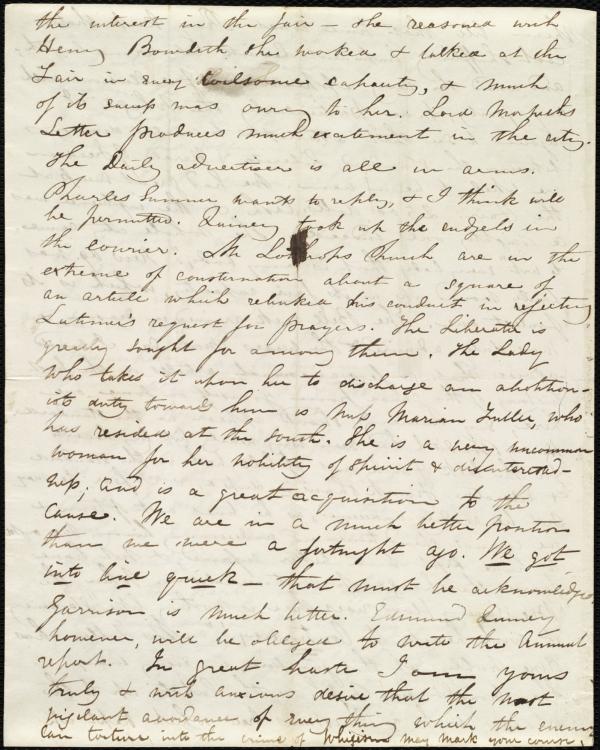 the interest in the fair – she reasoned with
Henry Bowditch she worked & talked at the
Fair in every toilsome capacity, & much
of its success was owing to her. Lord Morpeth's
Letter produces much excitement in the city.
The Daily advertiser is all in arms.
Charles Sumner wants to reply, & I think will
be permitted. Quincy took up the cudgels in
the courier. Mr Lothrops Church are in the
extreme of consternation about a square of
an article which rebuked his conduct in rejecting
Latimer's request for prayers. The Liberator is
greatly sought for among them. The Lady
who takes it upon her to discharge an abolition-
ists duty toward him is Miss Marian Fuller, who
has resided at the south. She is a very uncommon
woman for her nobility of spirit & disinterested-
ness, and is a great acquisition to the
cause. We are in a much better position
than we were a fortnight ago. We got
into line quick – that must be acknowledged.
Garrison is much better. Edmund Quincy
however, will be obliged to write the Annual
report. In great haste I am yours
truly & with anxious desire that the most
vigilant avoidance of every thing which the enemy
can torture into the crime of Whigism may mark your course,